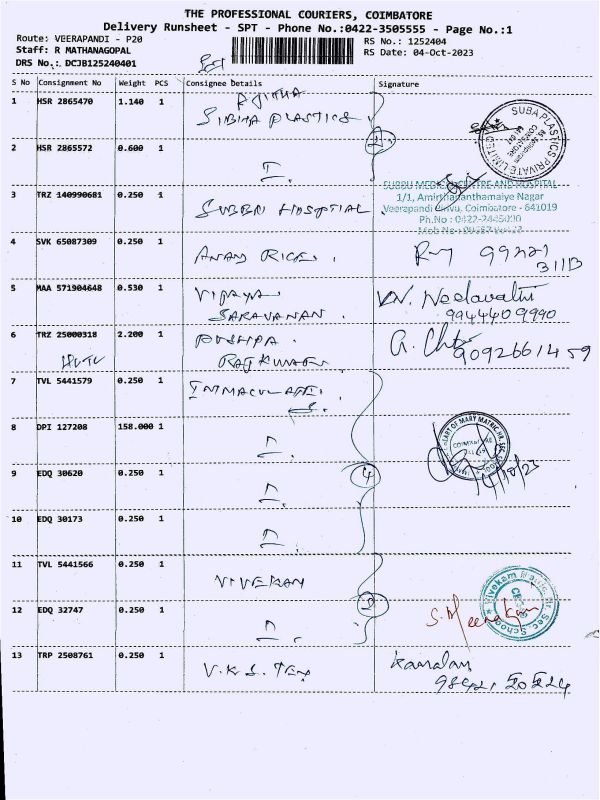 THE PROFESSIONAL COURIERS, COIMBATORE
Delivery Runsheet - SPT - Phone No.:0422-3505555 - Page No.:1
Route: VEERAPANDI - P20
RS No.: 1252404
Staff: R MATHANAGOPAL
RS Date: 04-Oct-2023
DRS No.: DCJB125240401
S No Consignment No Weight PCS Consignee Details Signature
1 HSR 2865470 1.140 1 SIBHA PLASTICS
SUBA PLASTICS PRIVATE LIMITED
2 HSR 2865572 0.600 1
SUBBU MEDICAL CENTRE AND HOSPITAL
1/1, Amirthananthamaiye Nagar
Veerapandi Pirivu, Coimbatore - 641019
Ph.No : 0422-2445000
3 TRZ 140990681 0.250 1 SUBBU HOSPTIAL
4 SVK 65087309 0.250 1 ANAND RICE
5 MAA 571904648 0.530 1 VIJAYA SARAVANAN. W. Neelavathi
9944409990
6 TRZ 25000318 2.200 1 PUSHPA RAJKUMAR 9092661459
7 TVL 5441579 0.250 1 IMMACULATE
8 DPI 127208 158.000 1
HEART OF MARY MATRIC. HR. SEC. SCHOOL
COIMBATORE
9 EDQ 30620 0.250 1
4
10 EDQ 30173 0.250 1
11 TVL 5441566 0.250 1 VIVEKAM
Vivekam Matric. Hr. Sec. School
12 EDQ 32747 0.250 1 S. Meenakshi
13 TRP 2508761 0.250 1 V.K.S. TEX
98421 20224